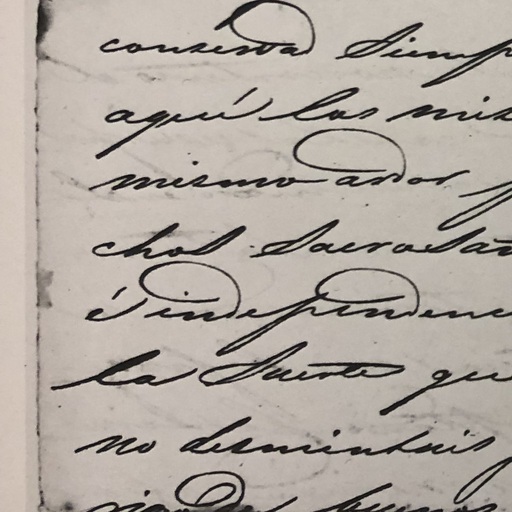 conserva Siemp
aqui las mis
mismo ardor p
chos Sacrosan
é independenc
la Suerte que
no desmintais